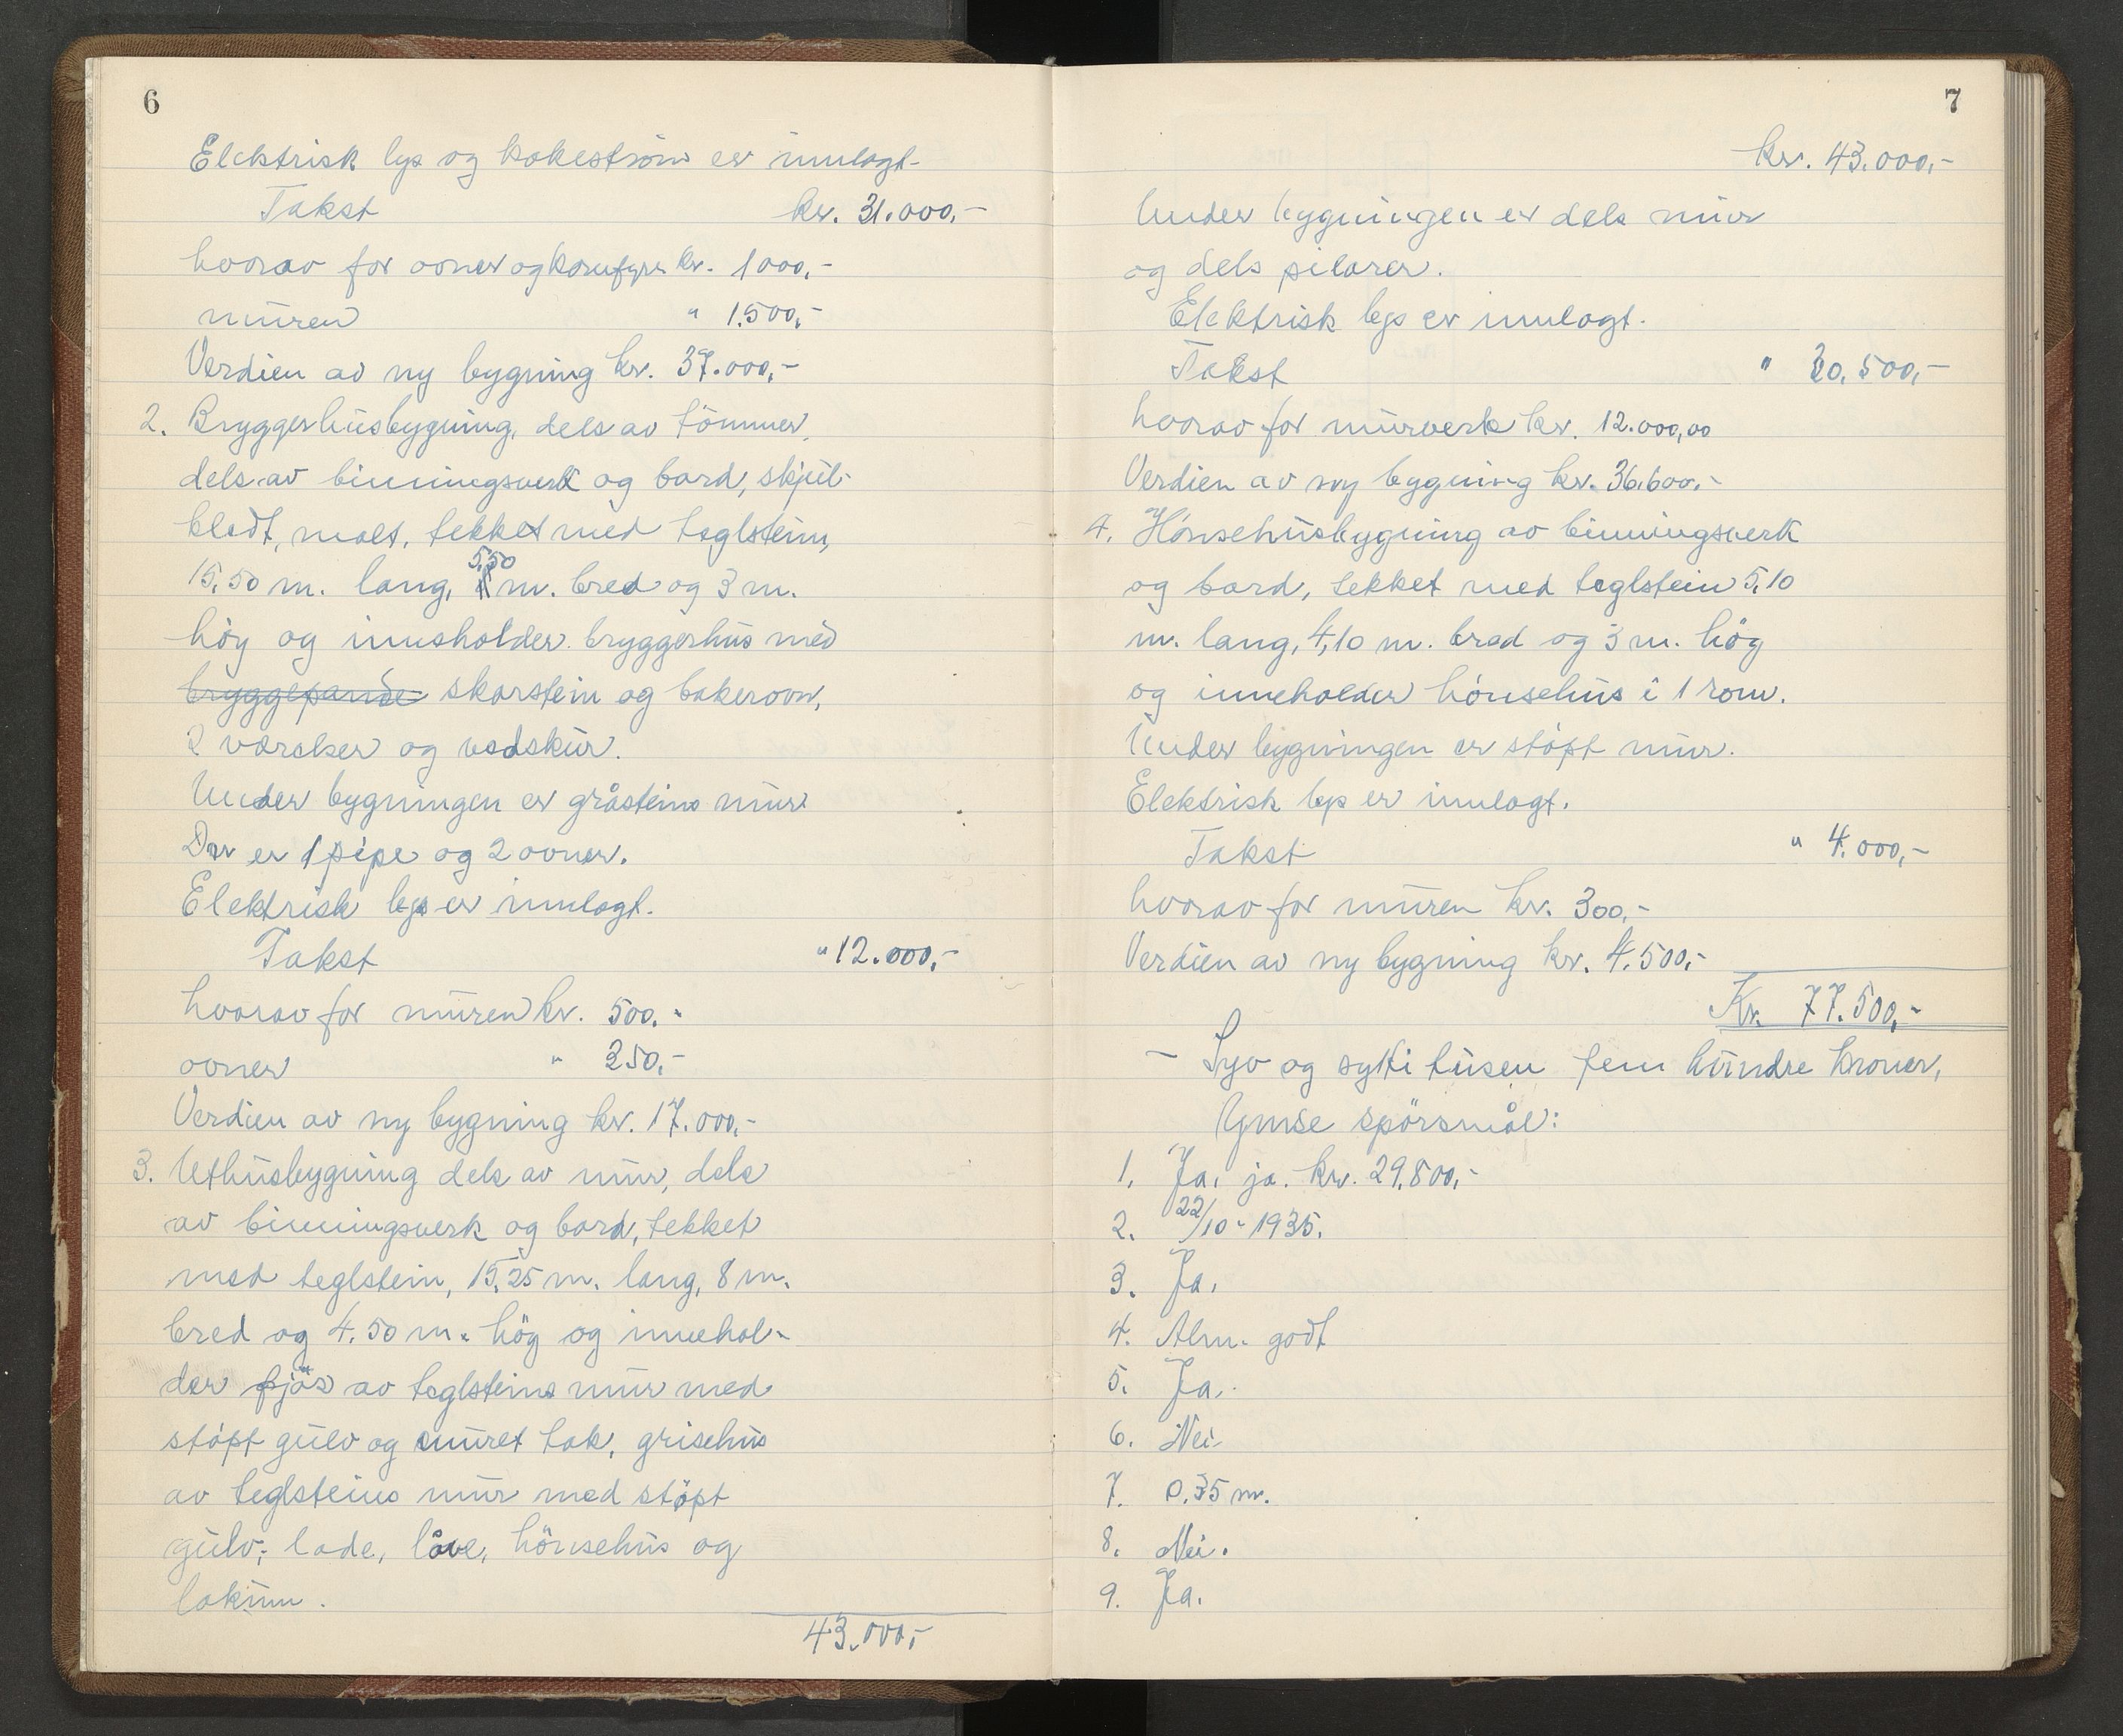 6
Elektrisk lys og kokestrøm er innlagt.
Takst kr. 31.000,-
hvorav for ovner og komfyrer kr. 1000,-
muren " 1.500,-
Verdien av ny bygning kr. 37.000,-
2. Bryggerhusbygning, dels av tömmer,
dels av binningsverk og bord, skjul-
kledt, malt, tekket med teglstein,
15,50 m. lang, 5,50 m. bred og 3 m.
höy og innsholder bryggerhus med
bryggepande skorstein og bakerovn,
2 værelser og vedskur.
Under bygningen er gråsteins mur
Der er 1 pipe og 2 ovner.
Elektrisk lys er innlagt.
Takst " 12.000,-
hvorav for muren kr. 500.-
ovner " 250,-
Verdien av ny bygning kr. 17.000,-
3. Uthusbygning dels av mur, dels
av binningsverk og bord, tekket
med teglstein, 15,25 m. lang, 8 m.
bred og 4.50 m. hög og innehol-
der fjös av teglsteins mur med
stöpt gulv og muret tak, grisehus
av teglsteins mur med stöpt
gulv; lade, låve, hönsehus og
lokum.
43.000,-
7
kr. 43.000,-
Under bygningen er dels mur
og dels pilarer.
Elektrisk lys er innlagt.
Takst " 30.500,-
hvorav for murverk kr. 12.000,00
Verdien av ny bygning kr. 36.600.-
4. Hönsehusbygning av binningsverk
og bord, tekket med teglstein 5,10
m. lang, 4,10 m. bred og 3 m. hög
og inneholder hönsehus i 1 rom.
Under bygningen er stöpt mur.
Elektrisk lys er innlagt.
Takst " 4.000,-
hvorav for muren kr. 300,-
Verdien av ny bygning kr. 4.500,-
Kr. 77.500,-
- Syv og sytti tusen fem hundre kroner,
Ymse spörsmål:
1. Ja, ja. kr. 29.800,-
2. 22/10-1935.
3. Ja.
4. Alm. godt
5. Ja.
6. Nei
7. 0.35 m.
8. Nei.
9. Ja.